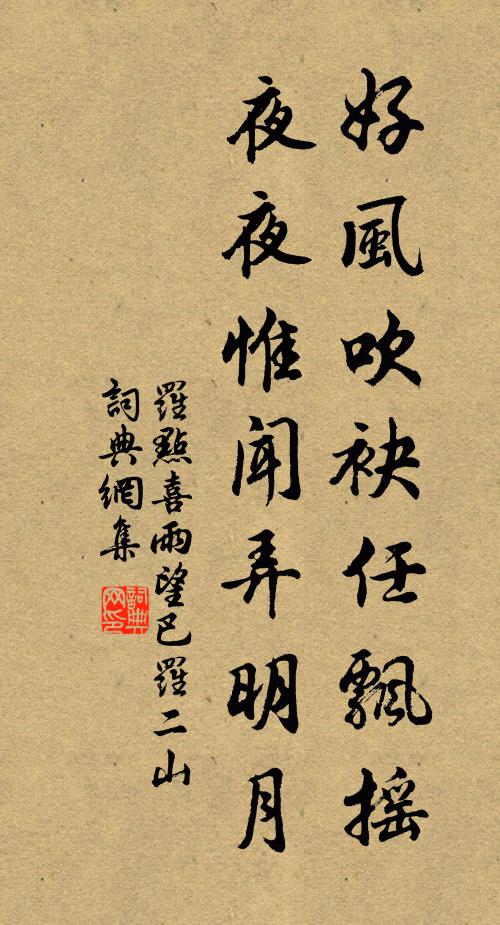 好風吹袂任飄摇
夜夜惟聞弄明月
羅點喜雨望巴羅二山
詞典網集
詞典
网印